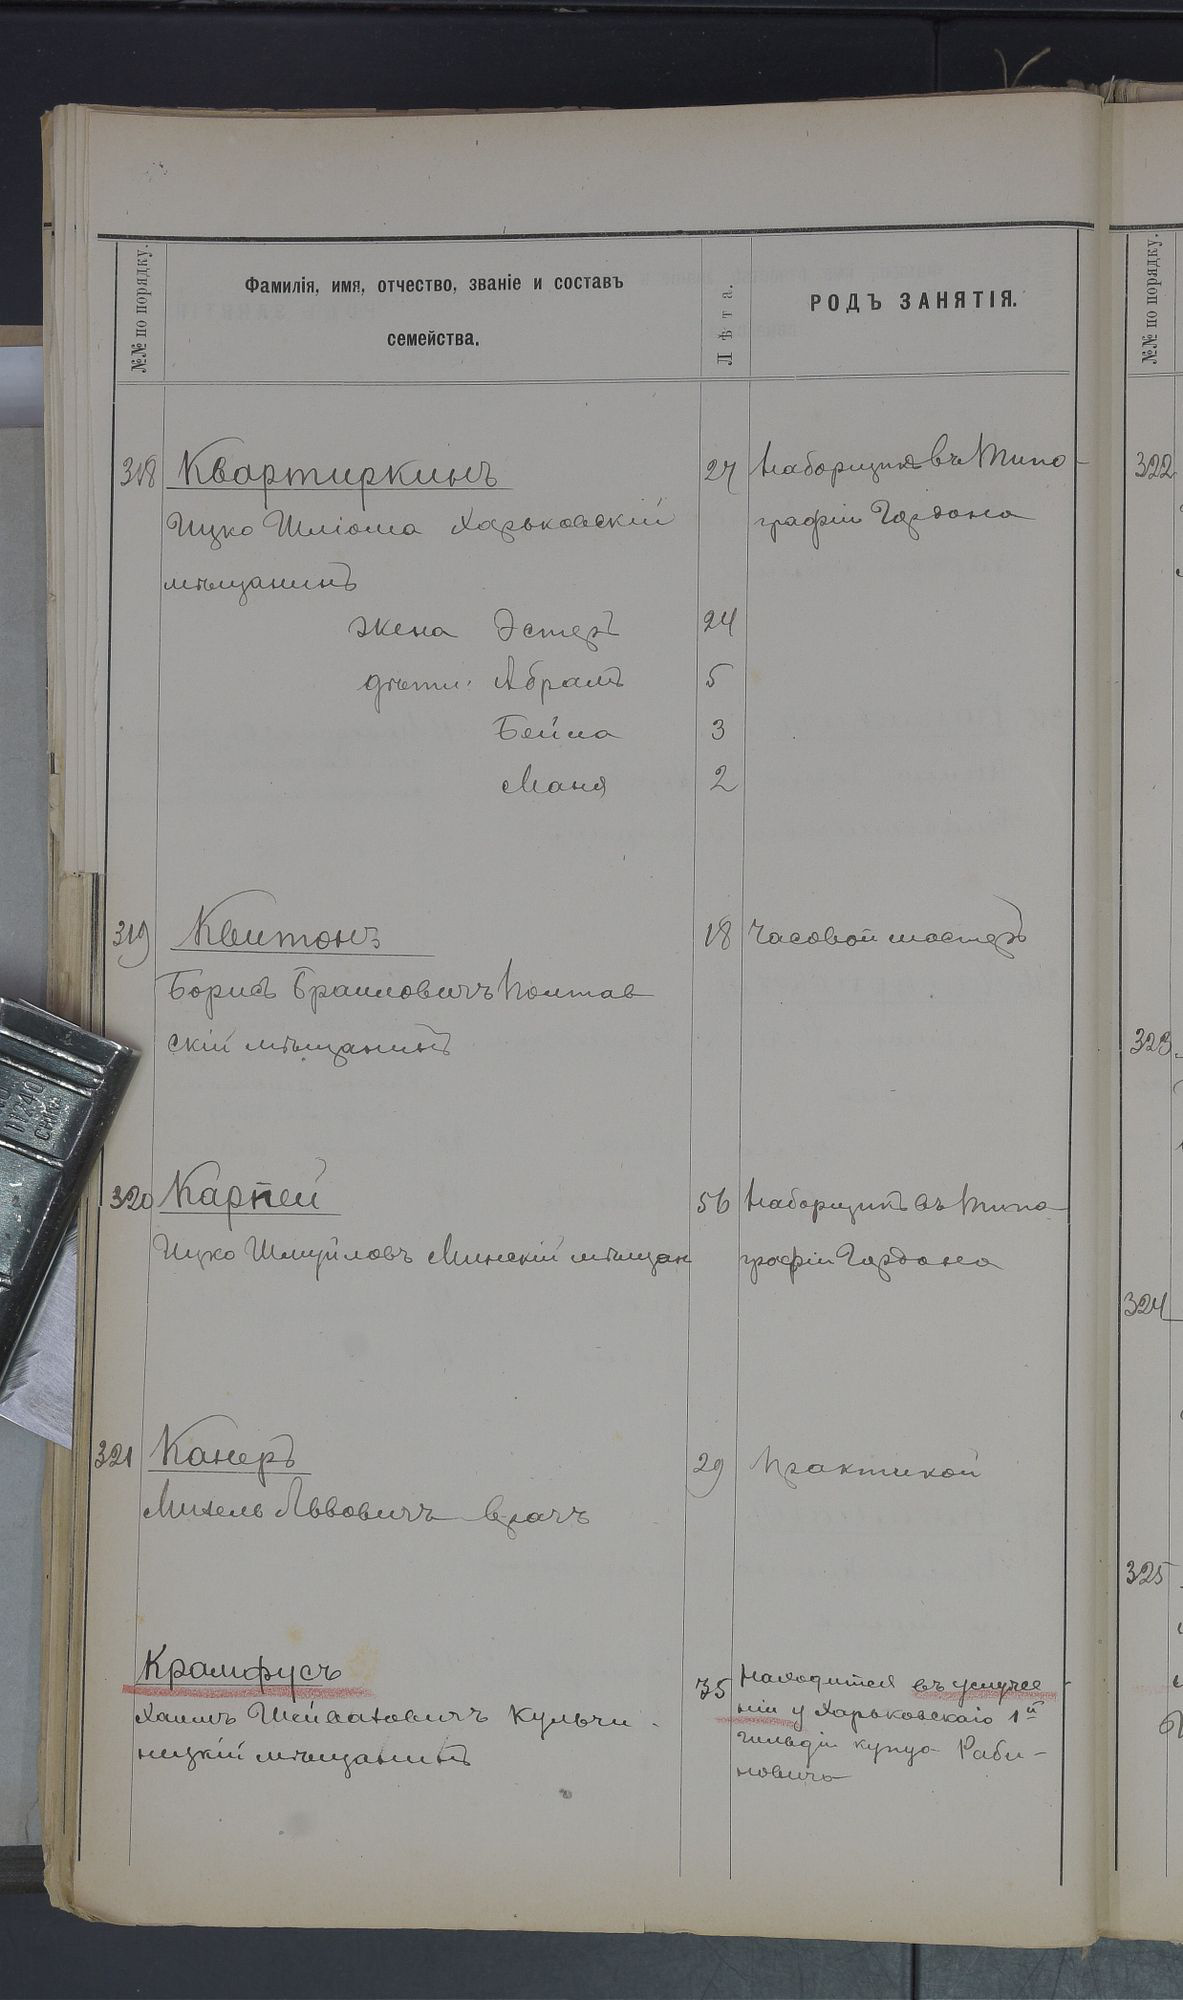 №№ по порядку.
Фамилія, имя, отчество, званіе и составъ
семейства.
Лѣта.
РОДЪ ЗАНЯТІЯ.
№№ по порядку.
318 Квартиркинъ 27 Наборщикъ въ Типо-
Ицко Шліома Харьковскій графіи Гордона
мѣщанинъ
жена Эстеръ 24
дѣти: Абрамъ 5
Бейла 3
Маня 2
319 Квитонъ 18 Часовой мастеръ
Борисъ Полтав
скій мѣщанинъ
320 Карпей 56 Наборщикъ въ Типо
Ицко Шмуйловъ Минскій мѣщан графіи Гордона
321 Канеръ 29 Практикой
Михель Львовичъ врачъ
Крамфусъ 35 Находится въ услуже
ніи у Харьковскаго 1й
Хаимъ Кульчи-
гильдіи купца Раби-
ницкій мѣщанинъ
новича
322
323
324
325